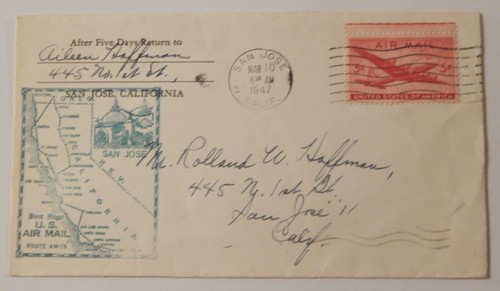 After Five Days Return to
Aileen Hoffman
445 No. 1st St.,
SAN JOSE, CALIFORNIA
SAN JOSE
MAR 10
AM
1947
CALIF.
2
AIR MAIL
5¢ 5¢
UNITED STATES OF AMERICA
OREG.
SAN JOSE
NEV.
CALIFORNIA
New Route
U.S.
AIR MAIL
ROUTE AM-76
Mr. Rolland W. Hoffman,
445 N. 1st St.
San José 11
Calif.